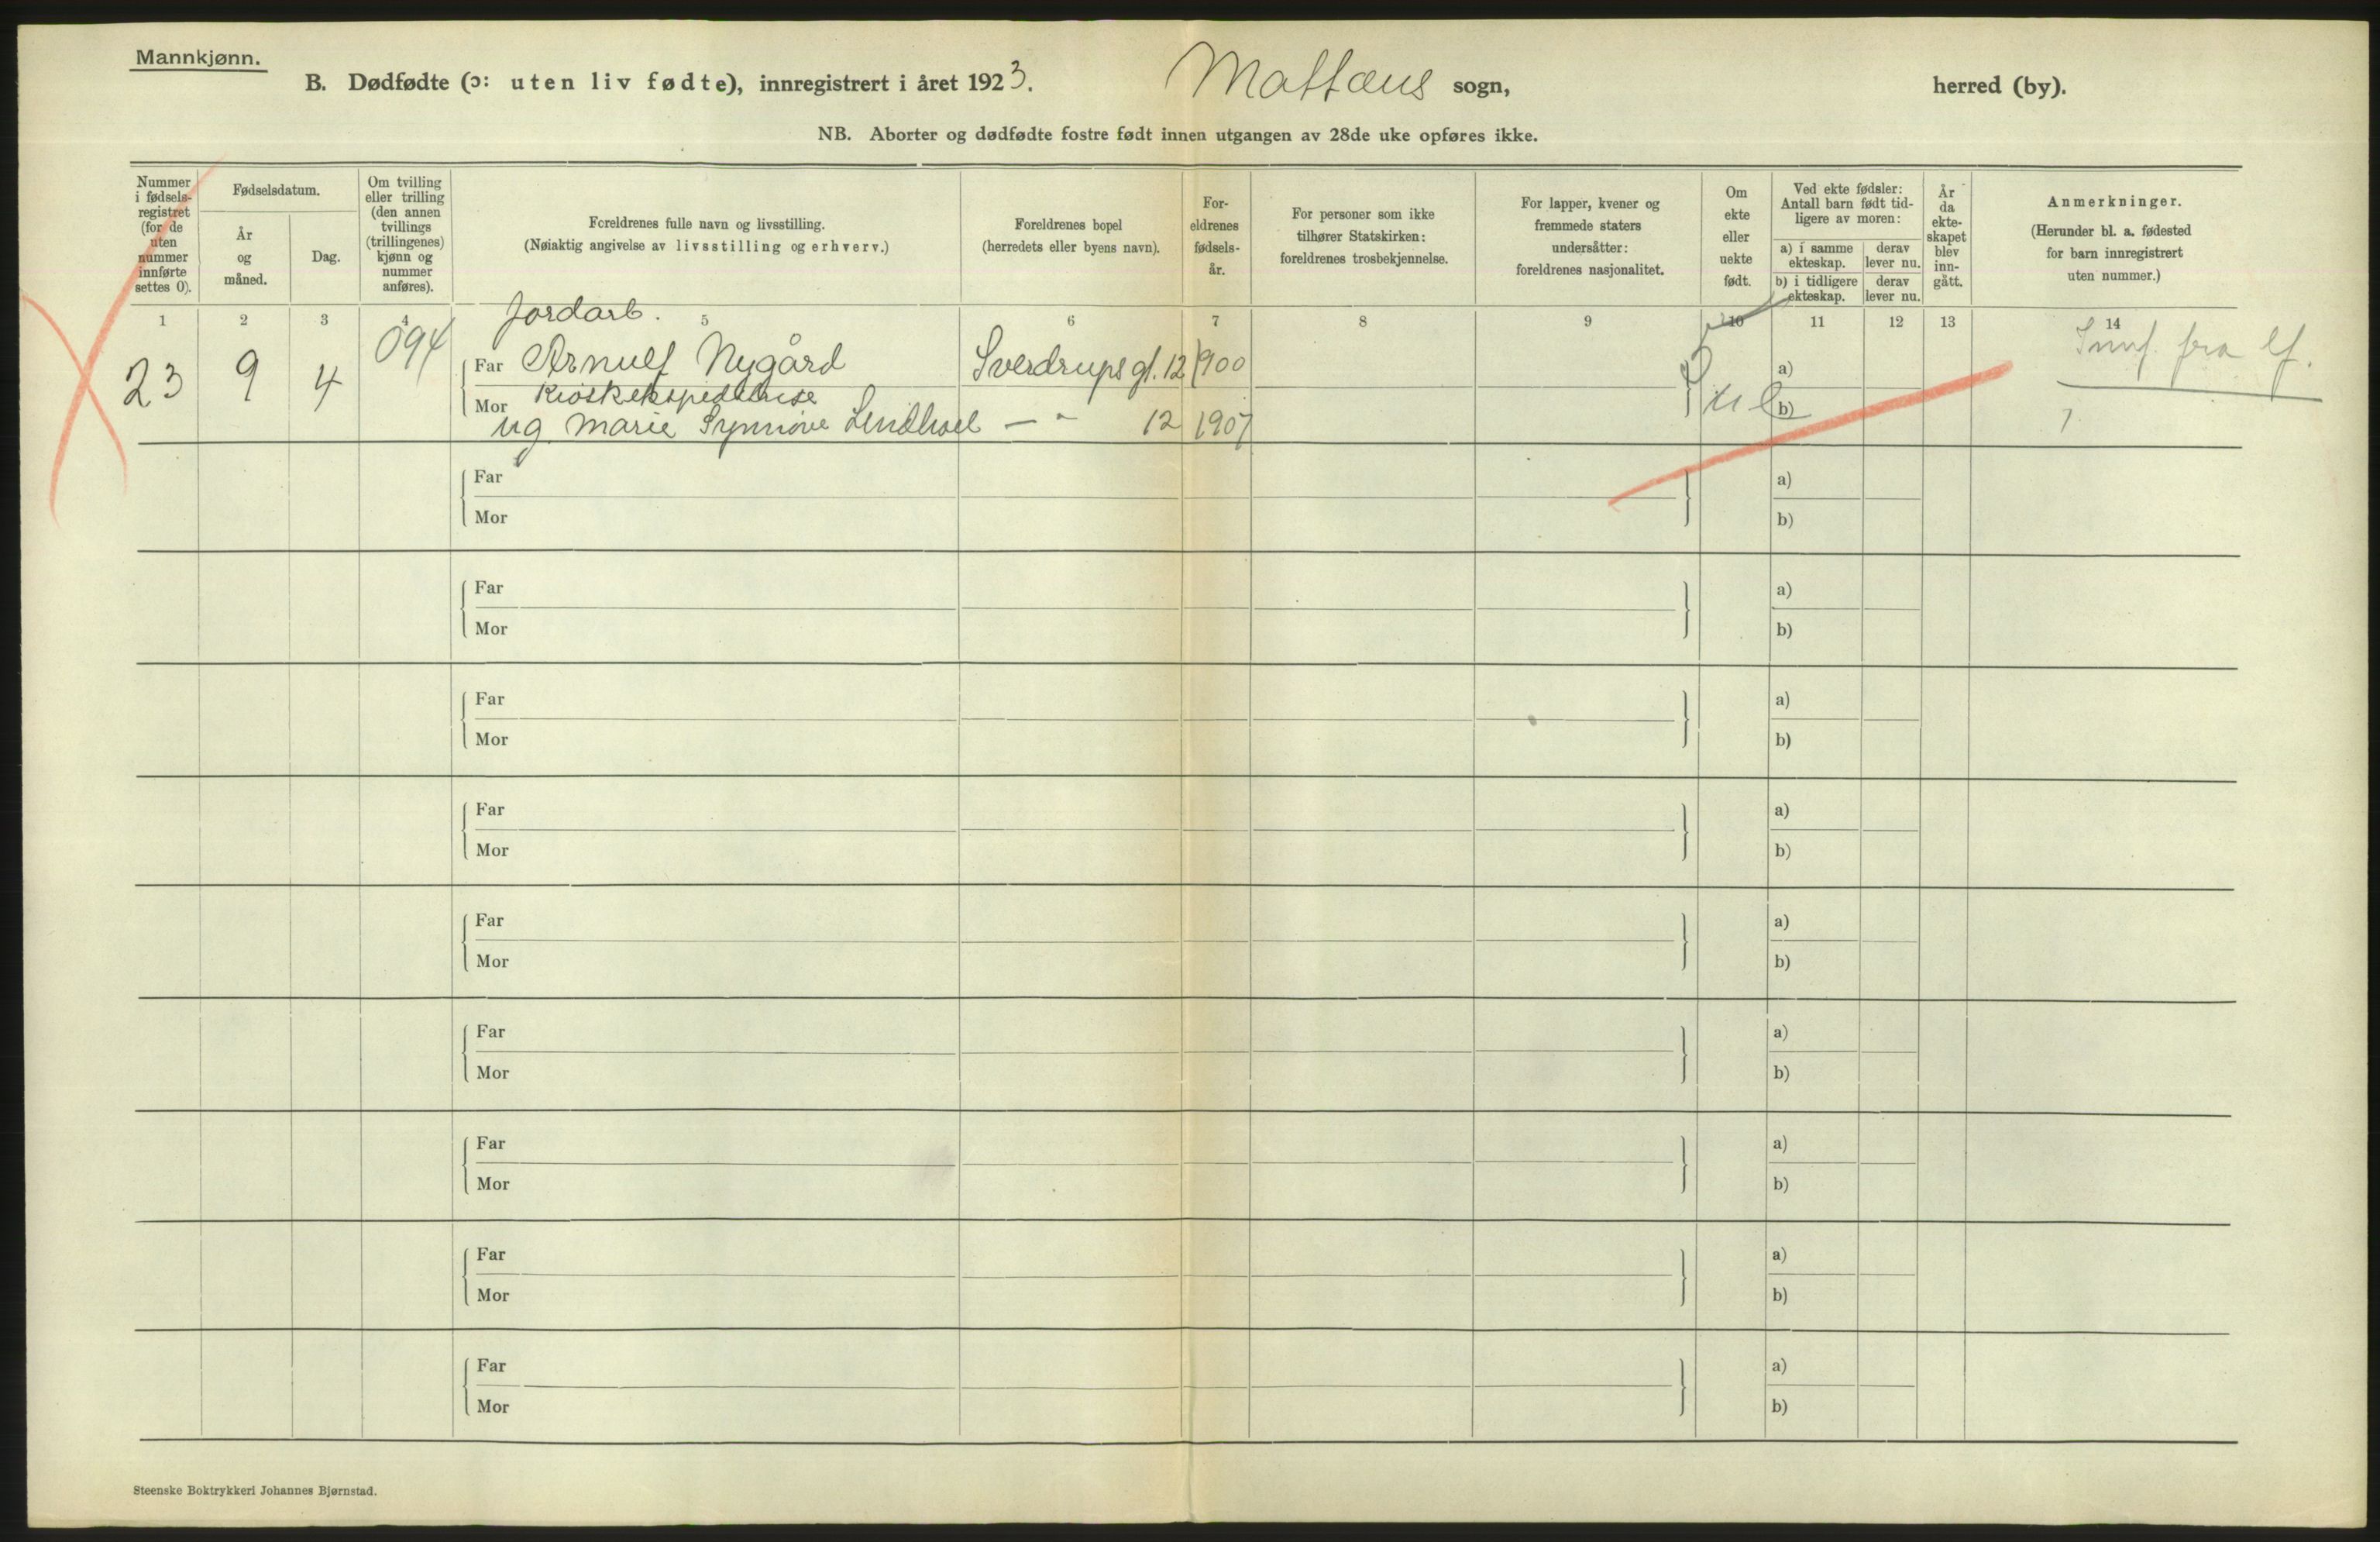 Mannkjønn.
B. Dødfødte (ɔ: uten liv fødte), innregistrert i året 1923. Mattæus sogn, herred (by).
NB. Aborter og dødfødte fostre født innen utgangen av 28de uke opføres ikke.
Nummer i fødsels-registret (for de uten nummer innførte settes 0).
Fødselsdatum.
År og måned.
Dag.
Om tvilling eller trilling (den annen tvillings (trillingenes) kjønn og nummer anføres).
Foreldrenes fulle navn og livsstilling.
(Nøiaktig angivelse av livsstilling og erhverv.)
Foreldrenes bopel
(herredets eller byens navn).
For-eldrenes fødsels-år.
For personer som ikke tilhører Statskirken: foreldrenes trosbekjennelse.
For lapper, kvener og fremmede staters undersåtter: foreldrenes nasjonalitet.
Om ekte eller uekte født.
Ved ekte fødsler: Antall barn født tid-ligere av moren:
a) i samme ekteskap.
derav lever nu.
b) i tidligere ekteskap.
derav lever nu.
År da ekte-skapet blev inn-gått.
Anmerkninger.
(Herunder bl. a. fødested for barn innregistrert uten nummer.)
1 2 3 4 5 6 7 8 9 10 11 12 13 14
Jordarb.
23 9 4 094 Far Arnulf Nygård Sverdrups gt. 12 1900 a)
Mor Kioskekspeditrise b)
ug. Marie Synnøve — " 12 1907
fra
Far a)
Mor b)
Far a)
Mor b)
Far a)
Mor b)
Far a)
Mor b)
Far a)
Mor b)
Far a)
Mor b)
Far a)
Mor b)
Far a)
Mor b)
Far a)
Mor b)
Steenske Boktrykkeri Johannes Bjørnstad.